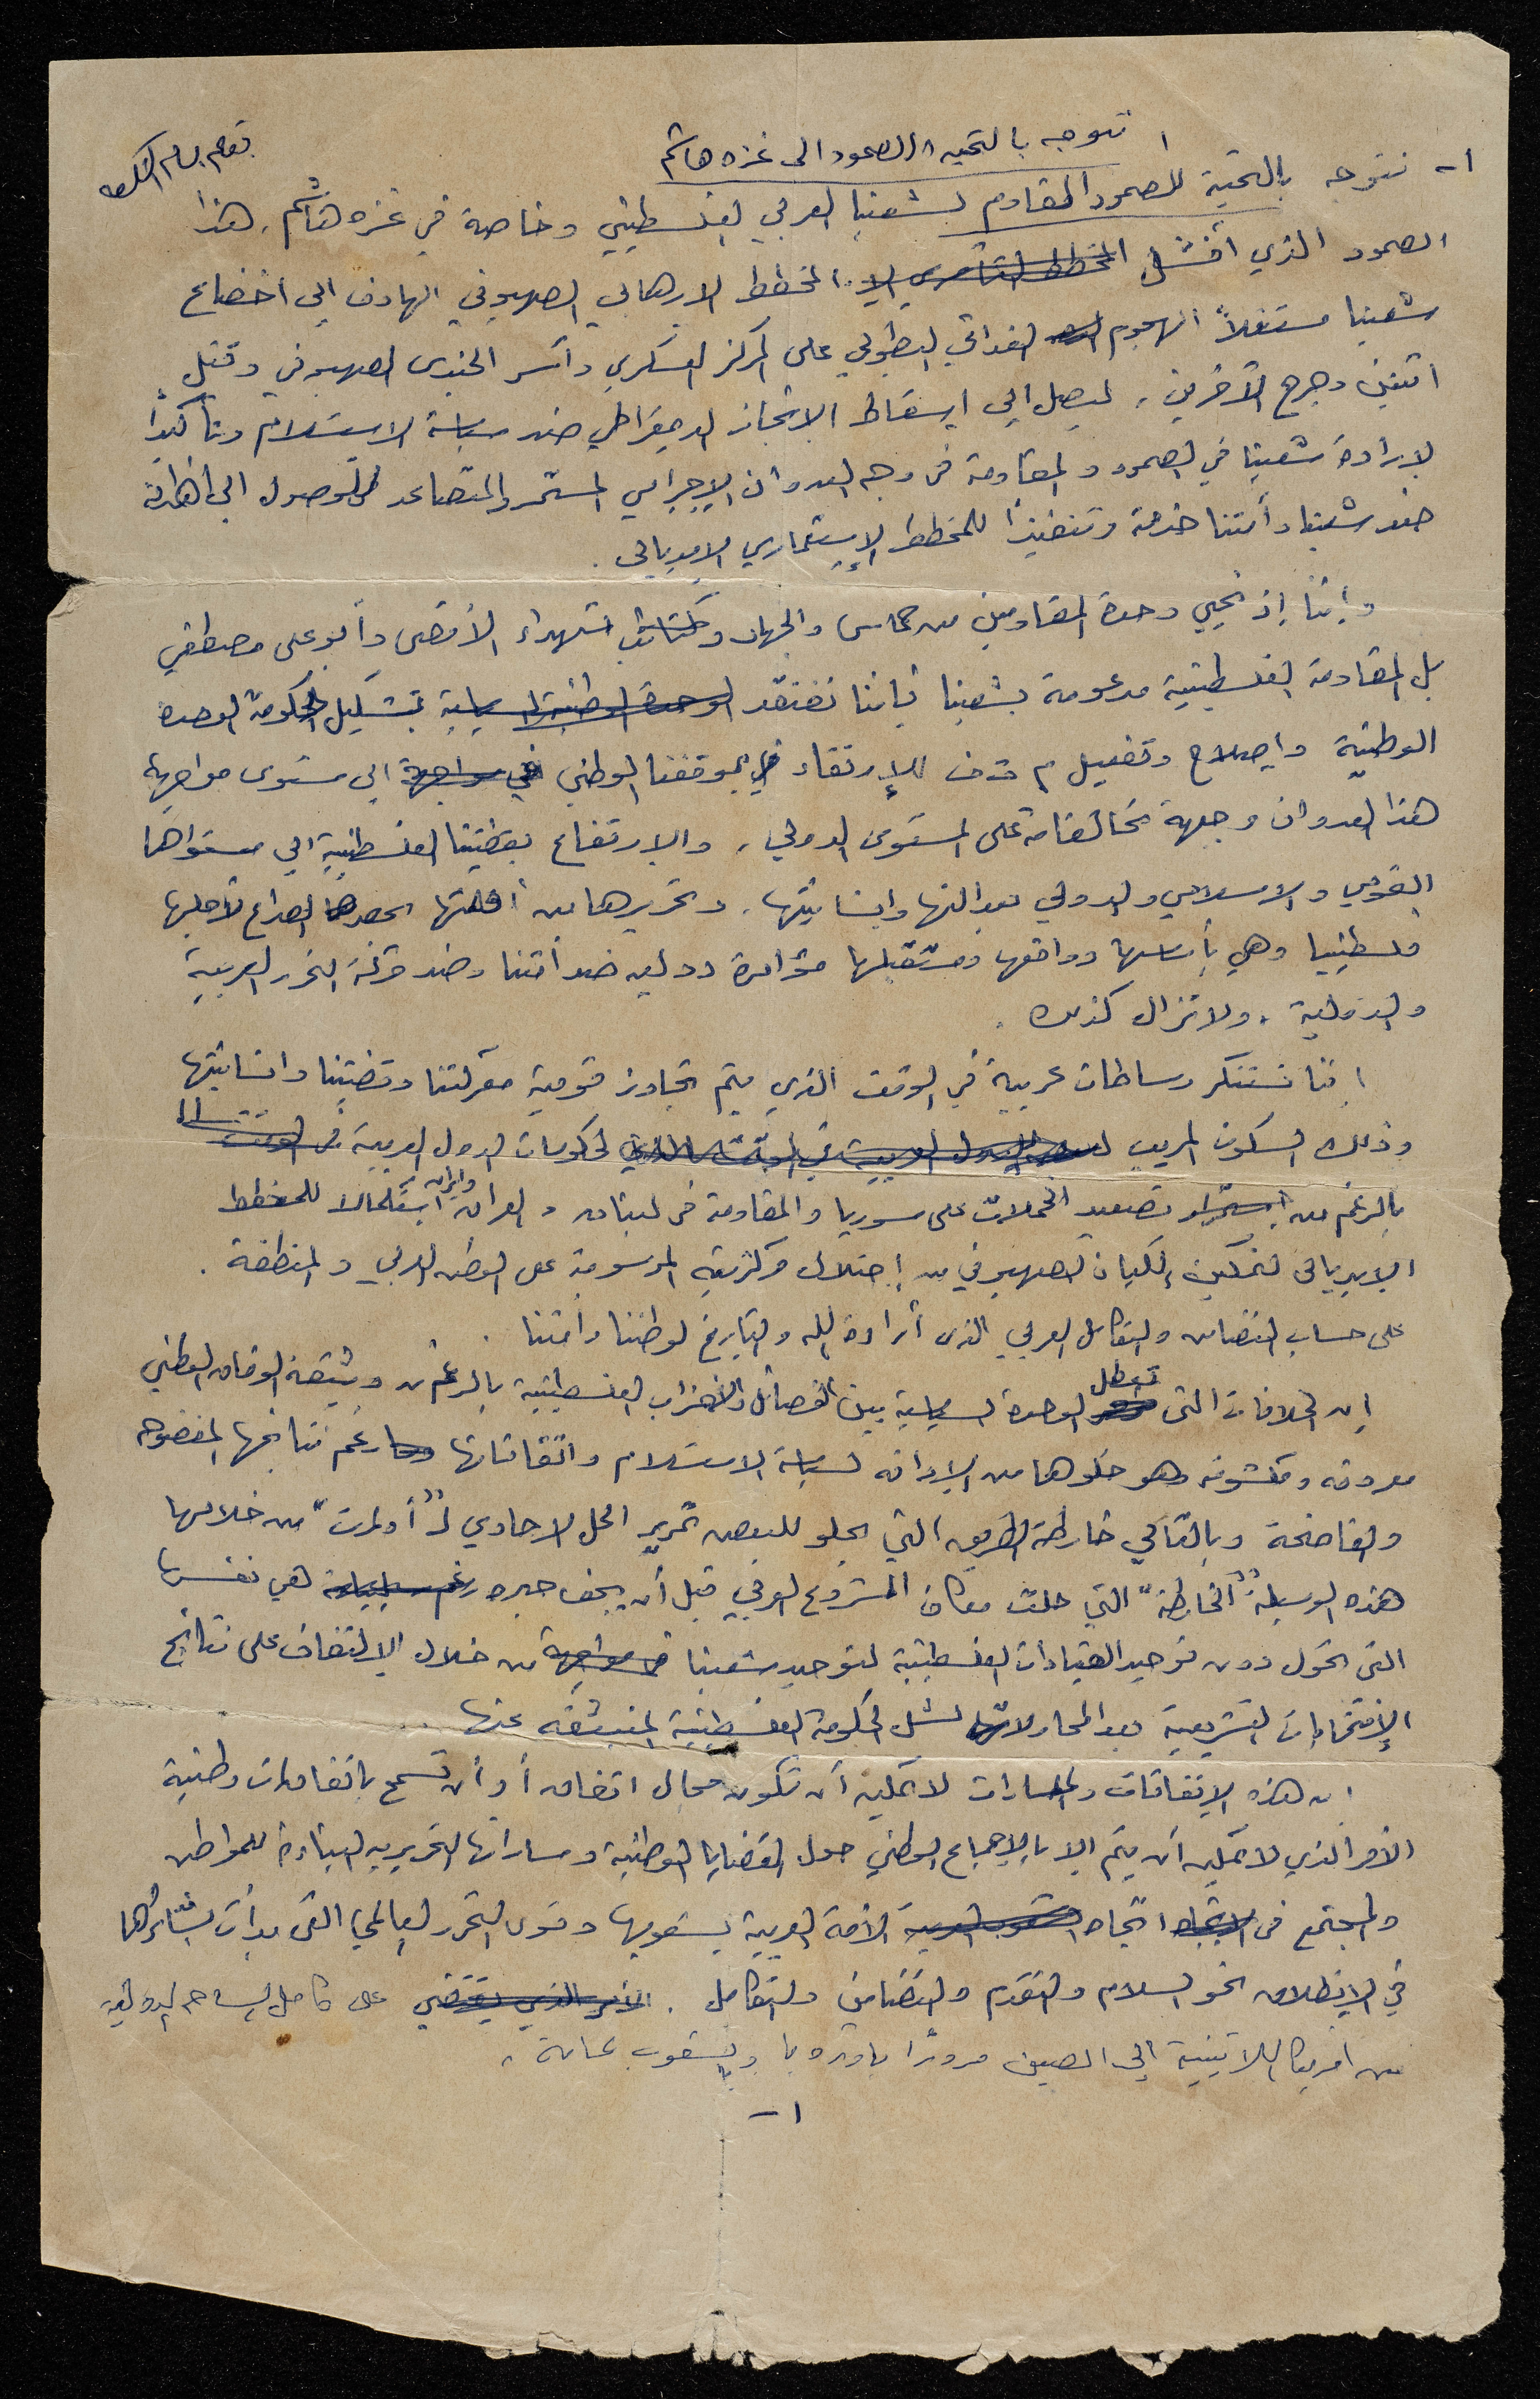 نتوجه بالتحيه الصمود الى غزه هاشم
بقلم بسام الكعبه
١- نتوجه بالتحية للصمود المقاوم لشعبنا العربي الفلسطيني وخاصة في غزه هاشم، هذا
الصمود الذي أفشل المخطط الارهابي الصهيوني الهادف الى اخضاع
شعبنا مستغلاً الهجوم الفدائي البطولي على المركز العسكري وأسر الجندي الصهيوني وقتل
اثنين وجرح الآخرين، ليصل الى إسقاط الانجاز الديمقراطي ضد سياسة الاستسلام وتأكيداً
لإرادة شعبنا في الصمود والمقاومة في وجه العدوان الإجرامي المستمر والمتصاعد للوصول الى أهدافه
ضد شعبنا وأمتنا خدمة وتنفيذاً للمخطط الإستعماري الامبريالي.
وإننا إذ نحيي وحدة المقاومين من حماس والجهاد وكتائب شهداء الأقصى وأبو على مصطفى
بل المقاومة الفلسطينية مدعومة بشعبنا فإننا نفتقد الوحدة الوطنية السياسية بتشكيل الحكومة الوحدة
الوطنية وإصلاح وتفعيل م ت ف للإرتقاء بموقفنا الوطني في مواجهة الى مستوى مواجهة
هذا العدوان وجبهة تحالفاته على المستوى الدولي، والإرتفاع بقضيتنا الفلسطينية الى مستواها
القومي والاسلامي والدولي بعدالتها وإنسانيتها، وتحريرها من الصراع لأجلها
فلسطينيا وهي بأساسها وواقعها ومستقبلها مؤامرة دوليه ضد أمتنا وضد حركة التحرر العربية
والدولية، ولا تزال كذلك.
إننا نستنكر وساطات عربية في الوقت الذي يتم تجاوز قومية معركتنا وقضيتنا وانسانيتها
وذلك السكوت المريب لحكومات الدول العربية في الوقت
بالرغم من استمرار تصعيد الحملات على سوريا والمقاومة في لبنان والعراق وإيران استكمالا للمخطط
الامبريالي لتمكين الكيان الصهيوني من إحتلال مركزيته المرسومة على الوطن العربي والمنطقة.
على حساب التضامن والتكامل العربي الذى أراده الله والتاريخ لوطننا وأمتنا.
إن الخلافات التى تعطل الوحدة السياسية بين الفصائل والأحزاب الفلسطينية بالرغم من وثيقة الوفاق الوطني
معروفه ومكشوفه وهو خلوها من الإدانه لسياسة الاستسلام واتفاقاتها رغم نتائجها المفضوحه
والفاضحة وبالتالي خارطة الطريق التي يحلو للبعض تمرير الحل الاحادي لـ "أولمرت" من خلالها
هذه الوسيلة "الخارطة" التي حلت مكان المشروع العربي قبل أن يجف حبره هي نفسها
التى تحول دون توحيد القيادات الفلسطينية لتوحيد شعبنا في مواجهة من خلال الإلتفاف على نتائج
الإنتخابات التشريعية بعد المحاولات لشل الحكومة الفلسطينية المنبثقه عنها
إن هذه الإتفاقات والمسارات لا يمكن أن تكون مجال اتفاق أو أن تسمح باتفاقات وطنية
الأمر الذي لا يمكن أن يتم إلا بالإجماع الوطني حول القضايا الوطنية ومساراتها التحريرية البناءة للمواطن
والمجتمع في اتجاه الأمة العربية بشعوبها وقوى التحرر العالمي التى بدأت بشائرها
في الإنطلاق نحو السلام والتقدم والتضامن والتكامل. الأمر الذي يقتضي على كامل الساحه الدولية
من امريكا اللاتينية إلى الصين مروراً باوروبا وبشعوب عامة.
١-